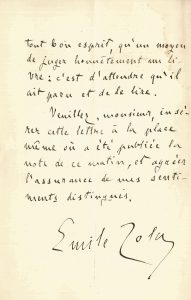 tout bon esprit, qu'un moyen
de juger honnêtement un li-
vre: c'est d'attendre qu'il
ait paru et de le lire.
Veuillez, monsieur, insé-
rer cette lettre à la place
même où a été publiée la
note de ce matin, et agréer
l'assurance de mes senti-
ments distingués.
Emile Zola